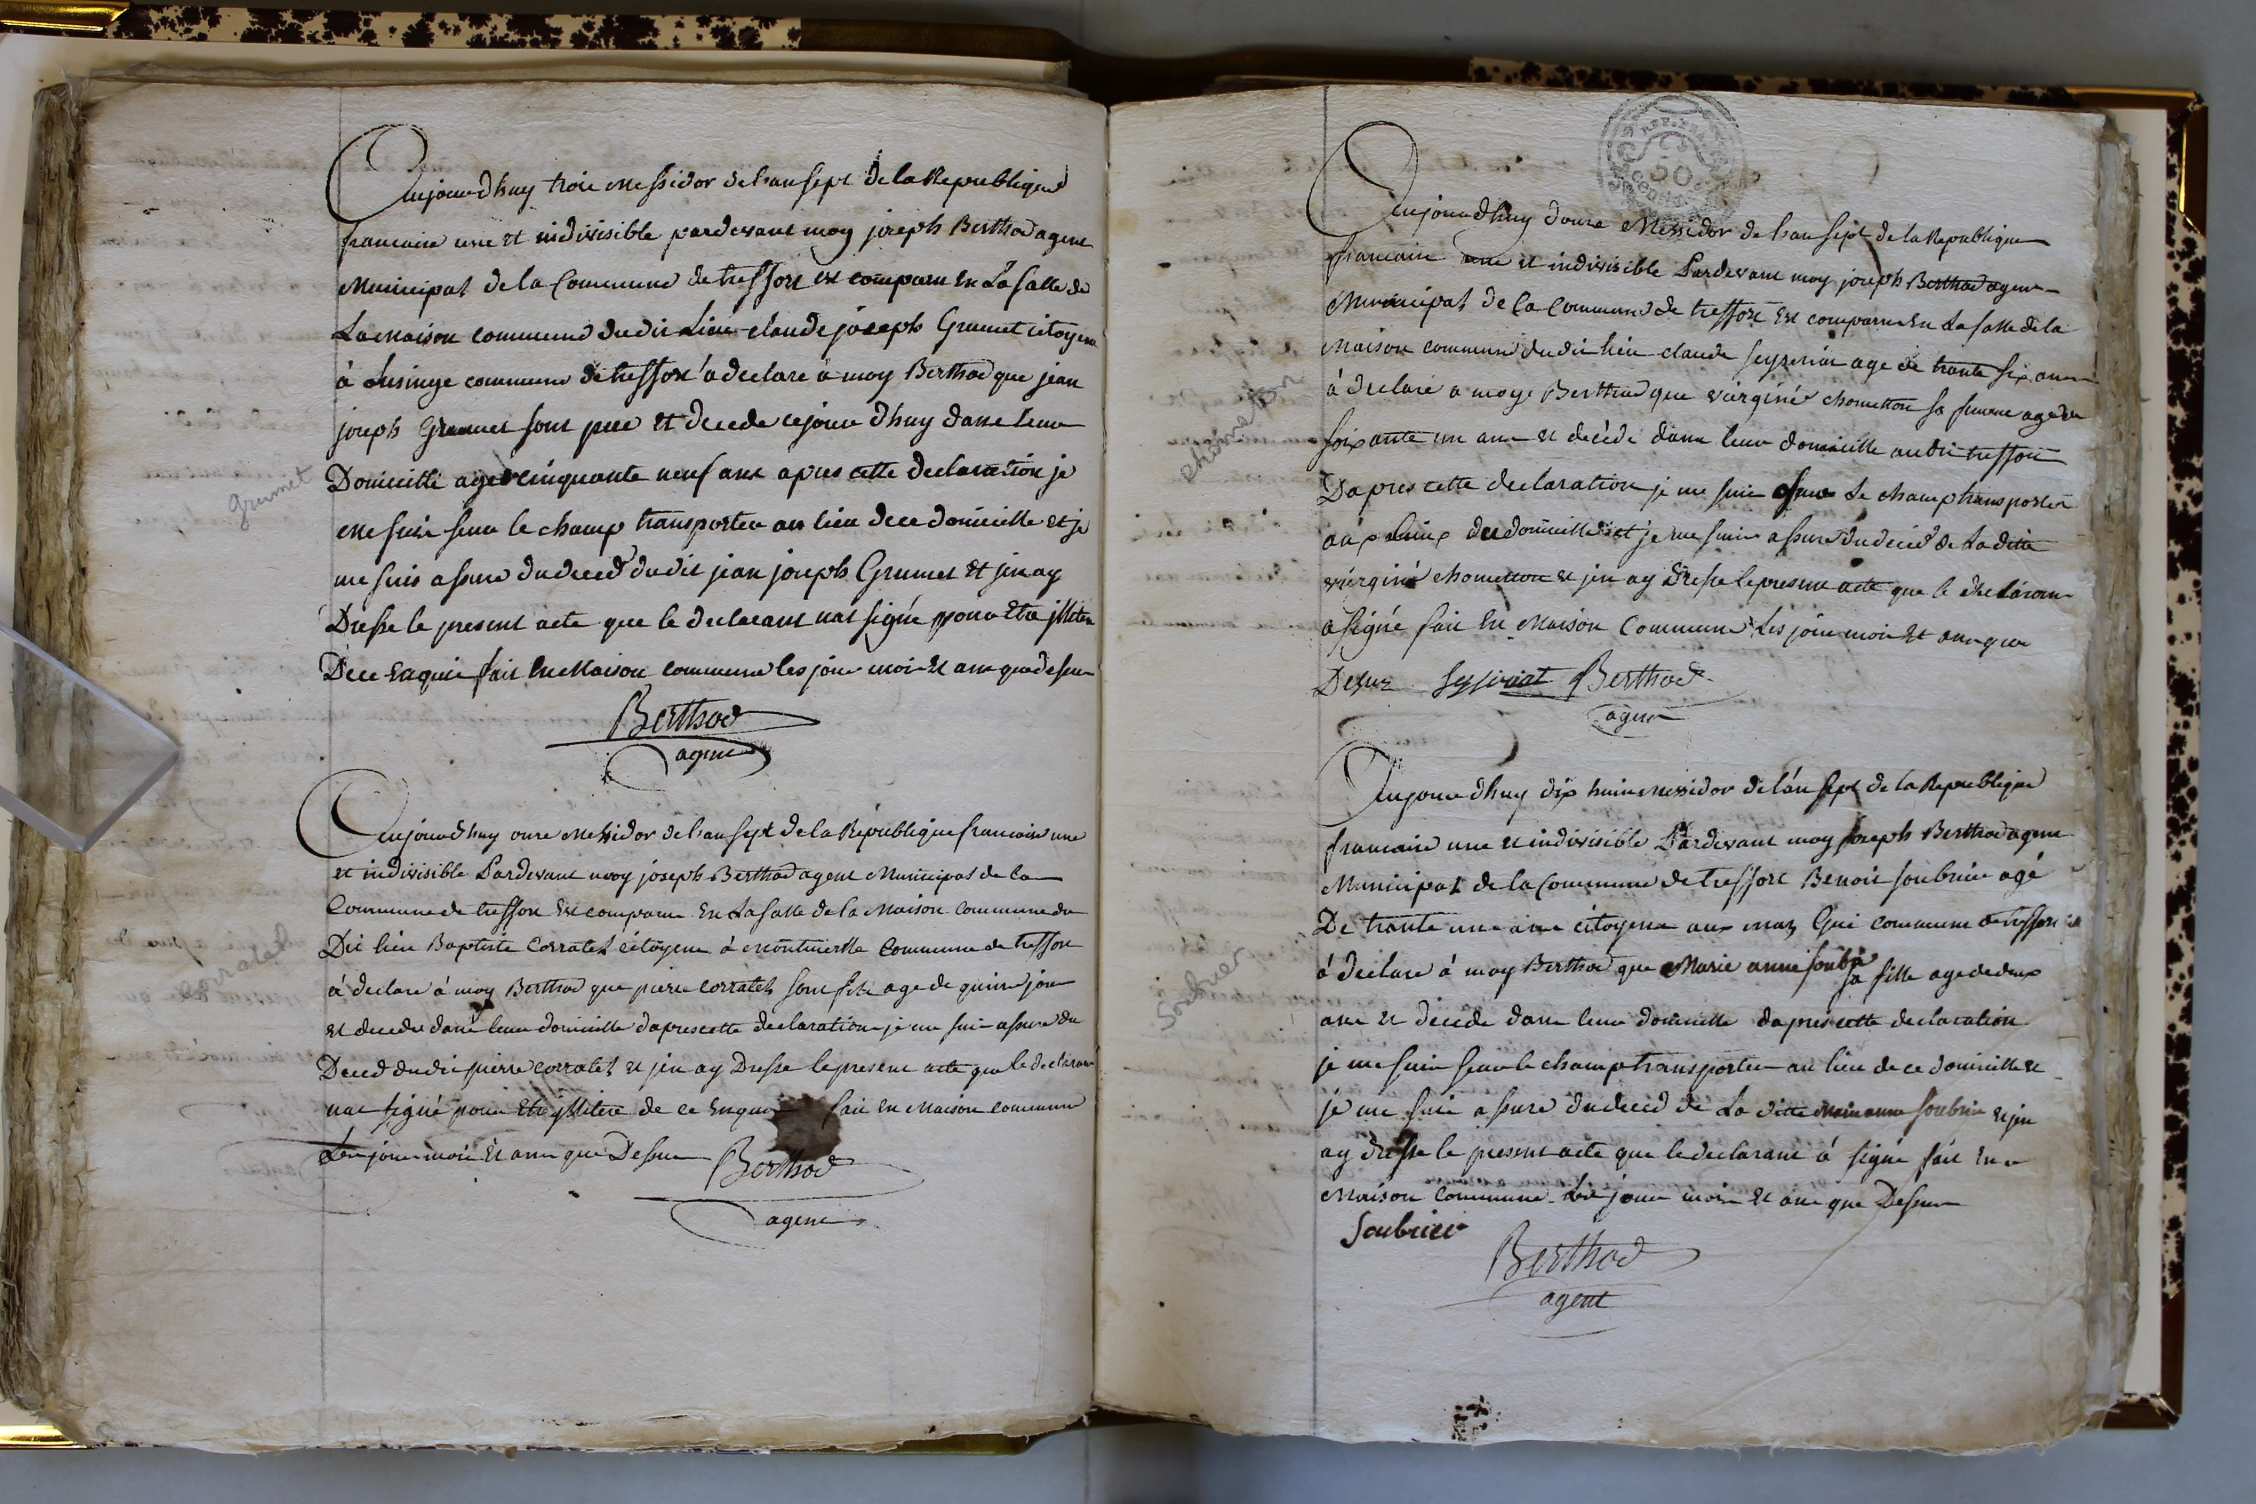 Aujourdhuy troie Messidor de lan sept de la Republique
francaise une et indivisible pardevant moy joseph Berthod agent
Municipal de la Commune de treffort est comparu En La salle de
La maison commune dudit Lieu claude joseph Grumet citoyen
à Lusinge commune de treffort a declare a moy Berthod que jean
joseph Grumet sont pere et decede cejour dhuy dans leur
Domicille age cinquante neuf ans apres cette declaration je
me suis sur le champ transporter au lieu de ce domicille et je
me suis assure du deced dudit jean joseph Grumet et jen ay
Dresse le present acte que le declarant nat signé pour etre jlliter
De ce Enquis fait En Maison commune les jour moi et ann que desus
Grumet
Berthod
agent
Aujourdhuy onze Messidor de lan sept de la République francaise une
et indivisible Pardevant moy joseph Berthod agent Municipal de la
Commune de treffort Est comparu En La salle de la Maison Commune du
Dit lieu Baptiste Corratel citoyen à montmerle Commune de treffort
à declare à moy Berthod que pierre corratel sont fils age de quinze jour
et decedu dans leur domicille dapres cette declaration je me suis assure du
Deced dudit pierre corratel et jen ay Dresse le present acte que le declarant
nat signé pour Etre jllitere de ce Enquis fait en Maison commune
Les jour moi Et ann que Desus
corratel
Berthod
agent
REP. FRA.
50
cent.
Aujourdhuy douze Messidor de lan sept de la Republique
francaise une et indivisible Pardevant moy joseph Berthod agent
Municipal de la Commune de treffort Est comparu En La salle de la
Maison commune dudit lieu claude seyzeriat age de trante six ans
à declaré a moy Berthod que virginé chometton sa femme agee de
soixante un ans et decédé dans leur domicille audit treffort
Dapres cette declaration je me suis sur Le champ transporter
au lieux de domicille et je me suis assure du deced de La ditte
virginé chometton et jen ay dresse le present acte que le declarant
a signé fait En Maison Commune Les jour moi et ann que
Desuz seyzeriat Berthod
agent
chometton
Aujourdhuy dix huit Messidor de lan sept de la Republique
francaise une et indivisible Pardevant moy joseph Berthod agent
Municipal de la Commune de treffort Benoit soubrier agé
De trante un ans citoyen aux maz Gui commune de treffort
à declare à moy Berthod que Marie anne soubr
sa fille age de deux
ans et décédé dans leur domicille dapres cette declaration
je me suis sur le champ transporter au lieu de ce domicille et
je me suis assure du deced de La ditte Marie anne soubrier et jen
ay dresse le present acte que le declarant à signé fait En
Maison Commune Les jour mois Et ann que Desus
soubrier
Soubrier
Berthod
agent